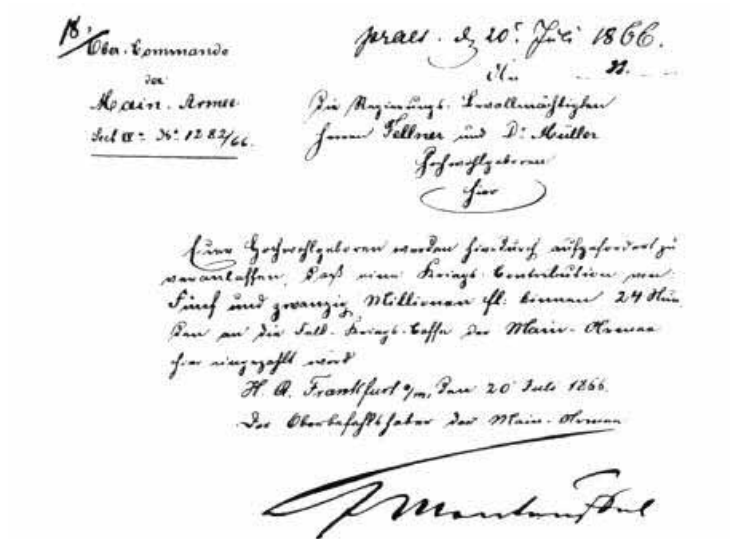 18.
Ober-Commando
der
Main-Armee
Sect III No. 1282/66.
praes. d. 20t Juli 1866.
An 22.
Die Regierungs-Bevollmächtigten
Herren Fellner und Dr. Müller
Hochwohlgeboren
hier
Euer Hochwohlgeboren werden hierdurch aufgefordert zu
veranlassen, daß eine Kriegs-Contribution von
Fünf und zwanzig Millionen fl: binnen 24 Stun
den an die Feld-Kriegs-Casse der Main-Armee
hier eingezahlt wird
H. Q. Frankfurt a/m, den 20 Juli 1866.
Der Oberbefehlshaber der Main-Armee
Manteuffel